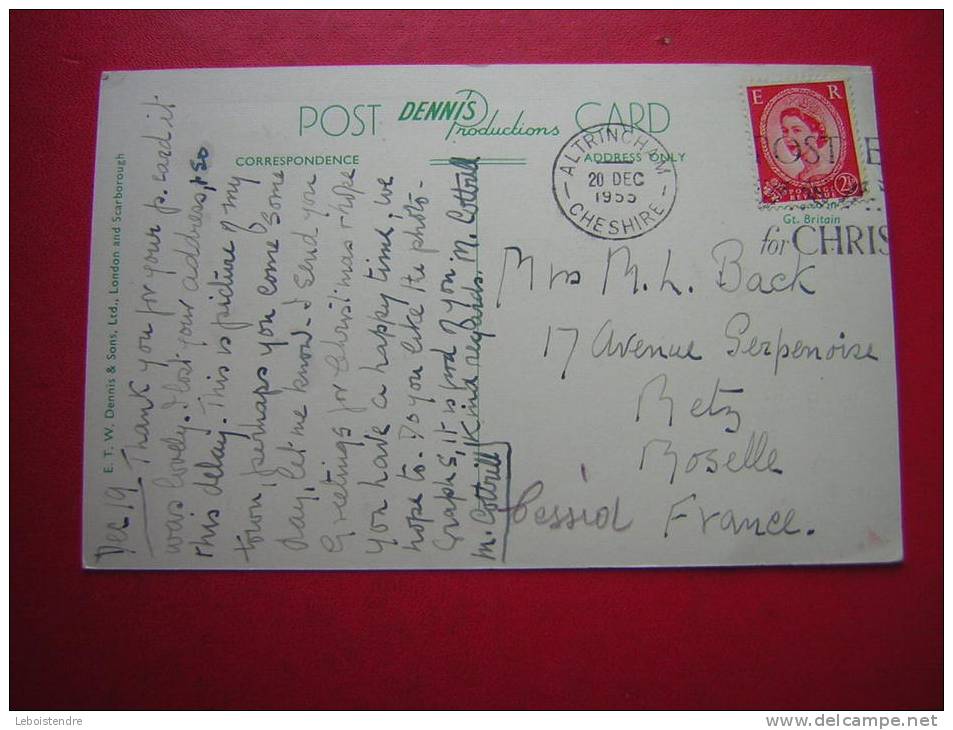 POST DENNIS Productions CARD
CORRESPONDENCE
ADDRESS ONLY
E. T. W. Dennis & Sons, Ltd., London and Scarborough
Dec 19
Thank you for your p.card it
was lovely. I lost your address, so
this delay. This is picture of my
town, perhaps you come some
day, let me know. I send you
Greetings for Christmas & hope
you have a happy time, we
hope to. Do you like the photo-
Graphs, it is good of you
Kind regards. M. Cottrill
M. Cottrill
E R
POSTAGE
REVENUE
2½
Gt. Britain
ALTRINCHAM
20 DEC
1955
CHESHIRE
POST E
for CHRIS
Mrs M. L. Back
17 Avenue Serpenoise
Metz
Moselle
France.
Leboistendre
www.delcampe.net